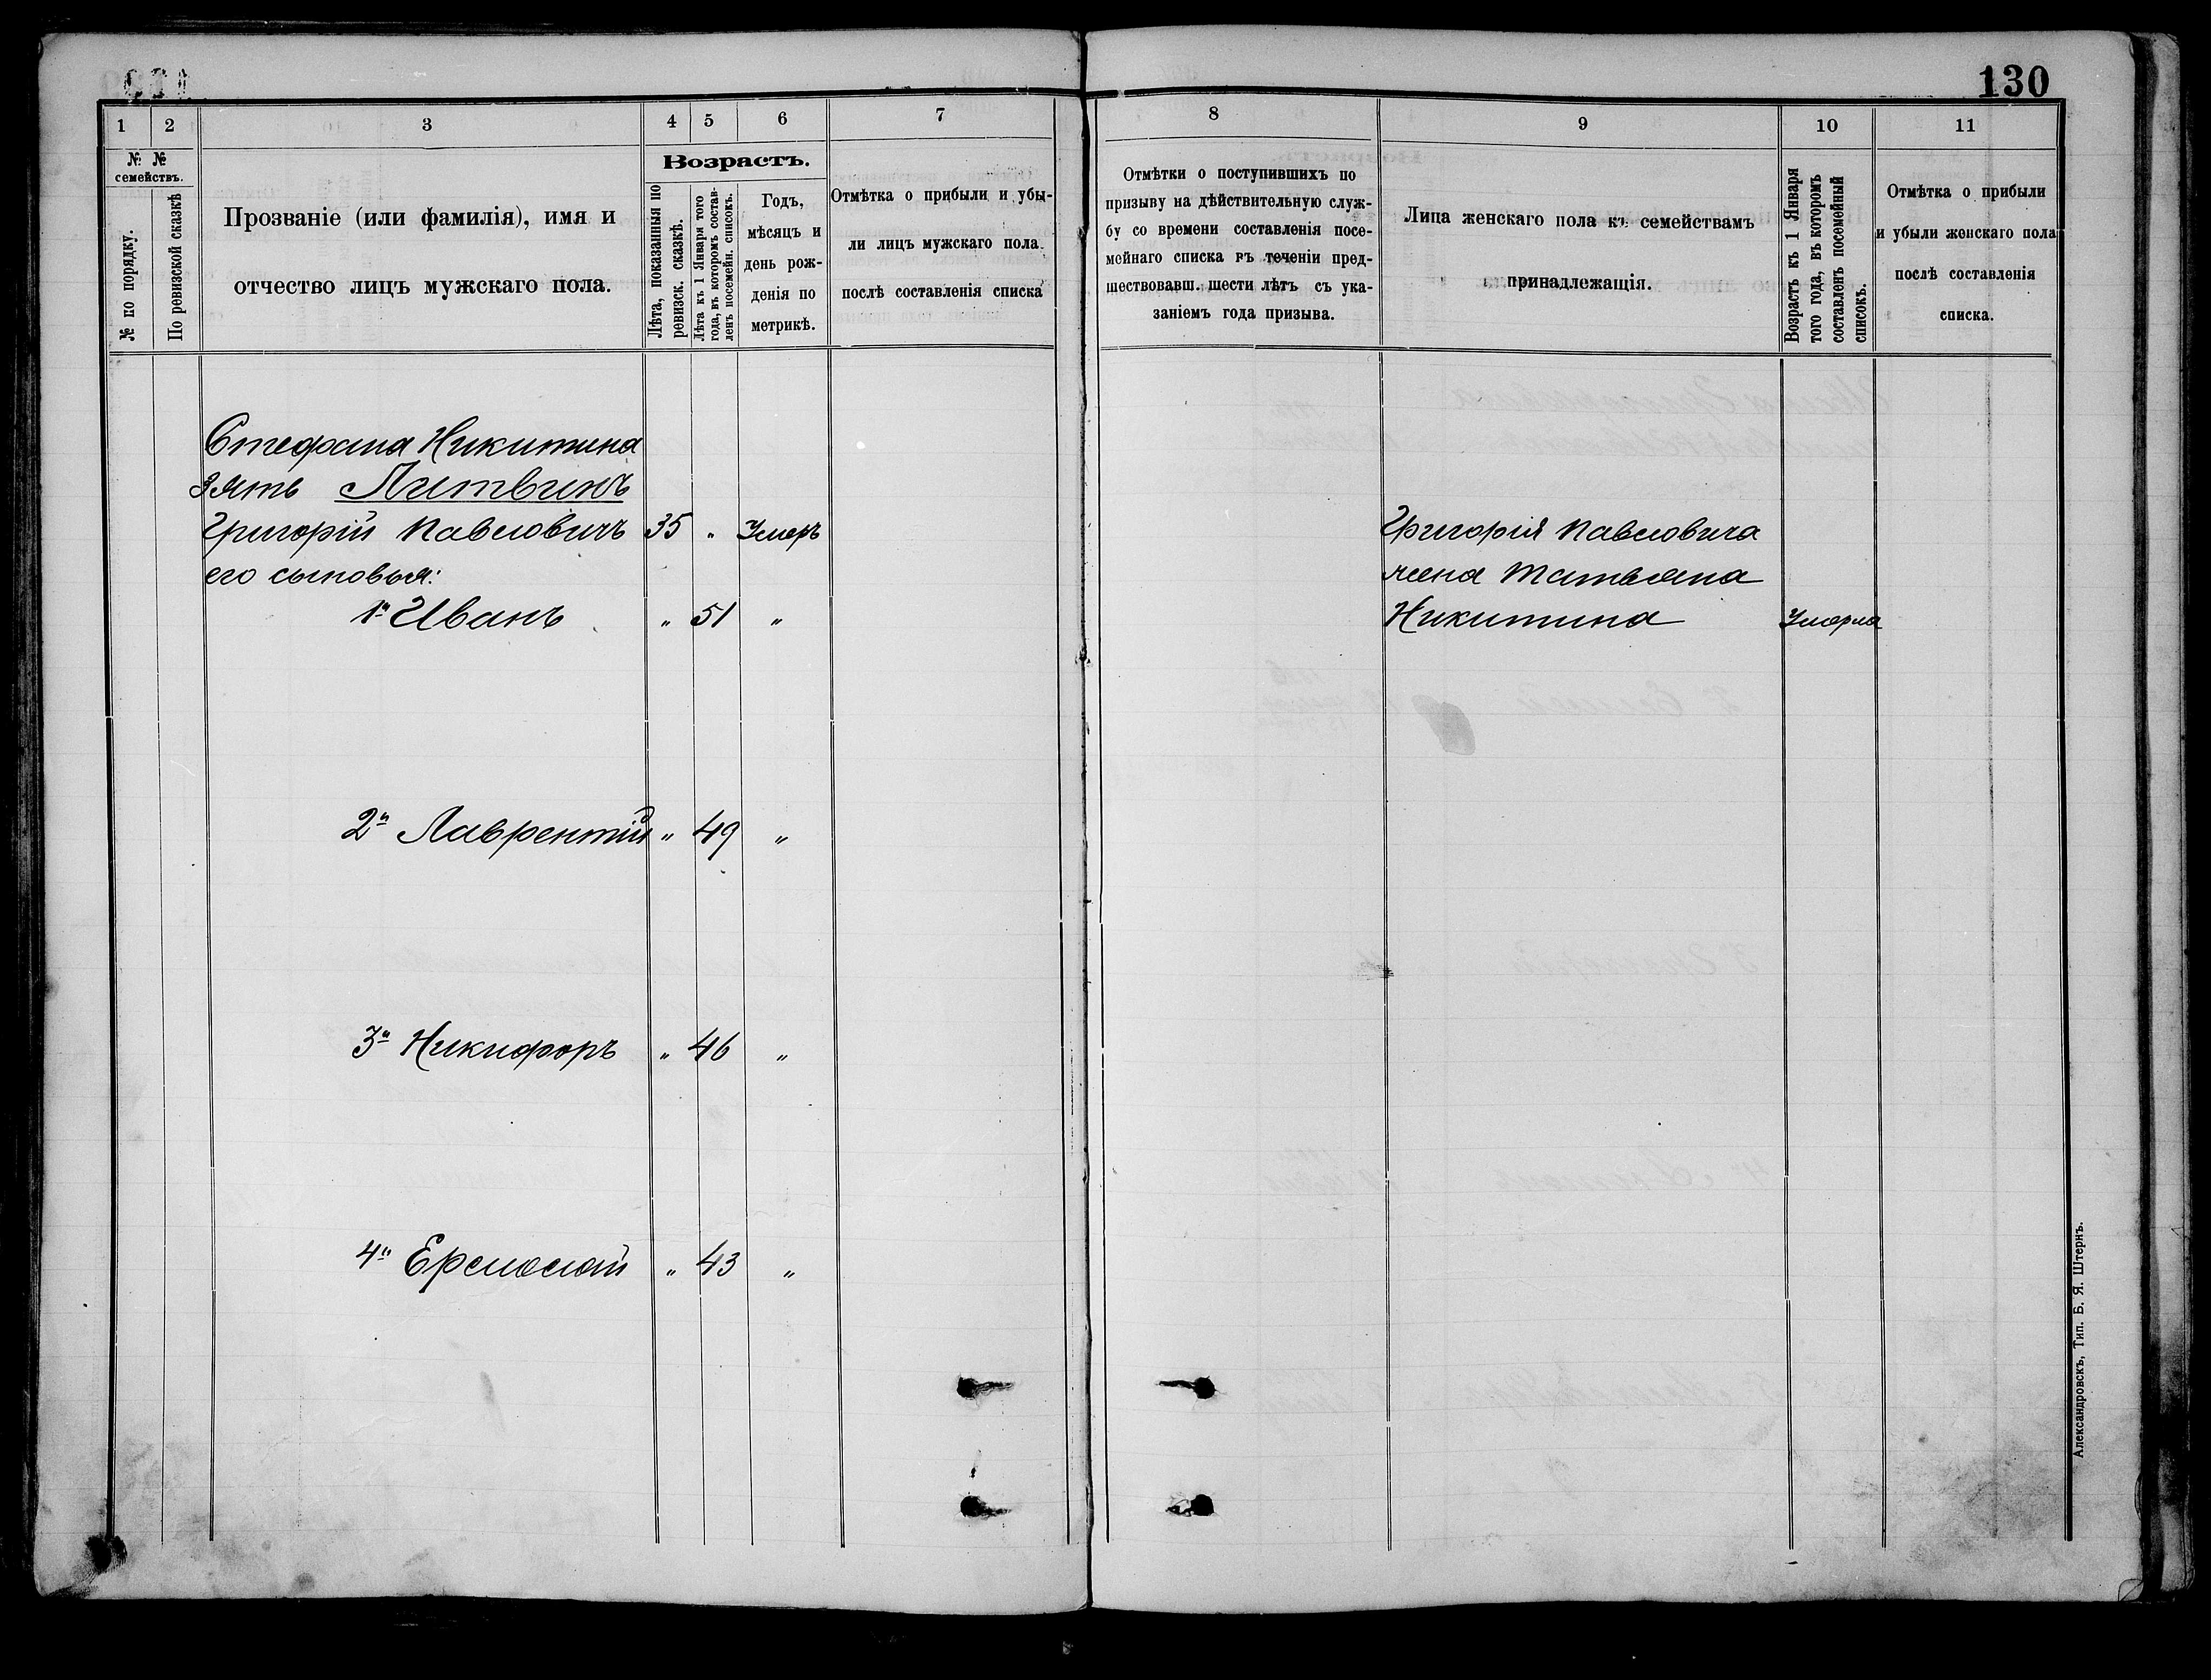 130
1 2 3 4 5 6 7
№ №
семействъ.
№ по порядку.
По ревизской сказкѣ
Прозваніе (или фамилія), имя и
отчество лицъ мужскаго пола.
Возрастъ.
Лѣта, показанныя по
ревизск. сказкѣ.
Лѣта къ 1 Января того
года, въ которомъ состав-
ленъ посемейн. списокъ.
Годъ,
мѣсяцъ и
день рож-
денія по
метрикѣ.
Отмѣтка о прибыли и убы-
ли лицъ мужскаго пола
послѣ составленія списка
Стефана Никитина
зять Литвинъ
Григорій Павловичъ 35 „ Умеръ
его сыновья:
1й Иванъ „ 51 „
2й Лаврентій „ 49 „
3й Никифоръ „ 46 „
4й Ермолай „ 43 „
8 9 10 11
Отмѣтки о поступившихъ по
призыву на дѣйствительную служ-
бу со времени составленія посе-
мейнаго списка въ теченіи пред-
шествовавш. шести лѣтъ съ ука-
заніемъ года призыва.
Лица женскаго пола къ семействамъ
принадлежащія.
Возрастъ къ 1 Января
того года, въ которомъ
составленъ посемейный
списокъ.
Отмѣтка о прибыли
и убыли женскаго пола
послѣ составленія
списка.
Григорія Павловича
жена Татьяна
Никитина Умерла
Александровскъ, Тип. Б. Я. Штернъ.